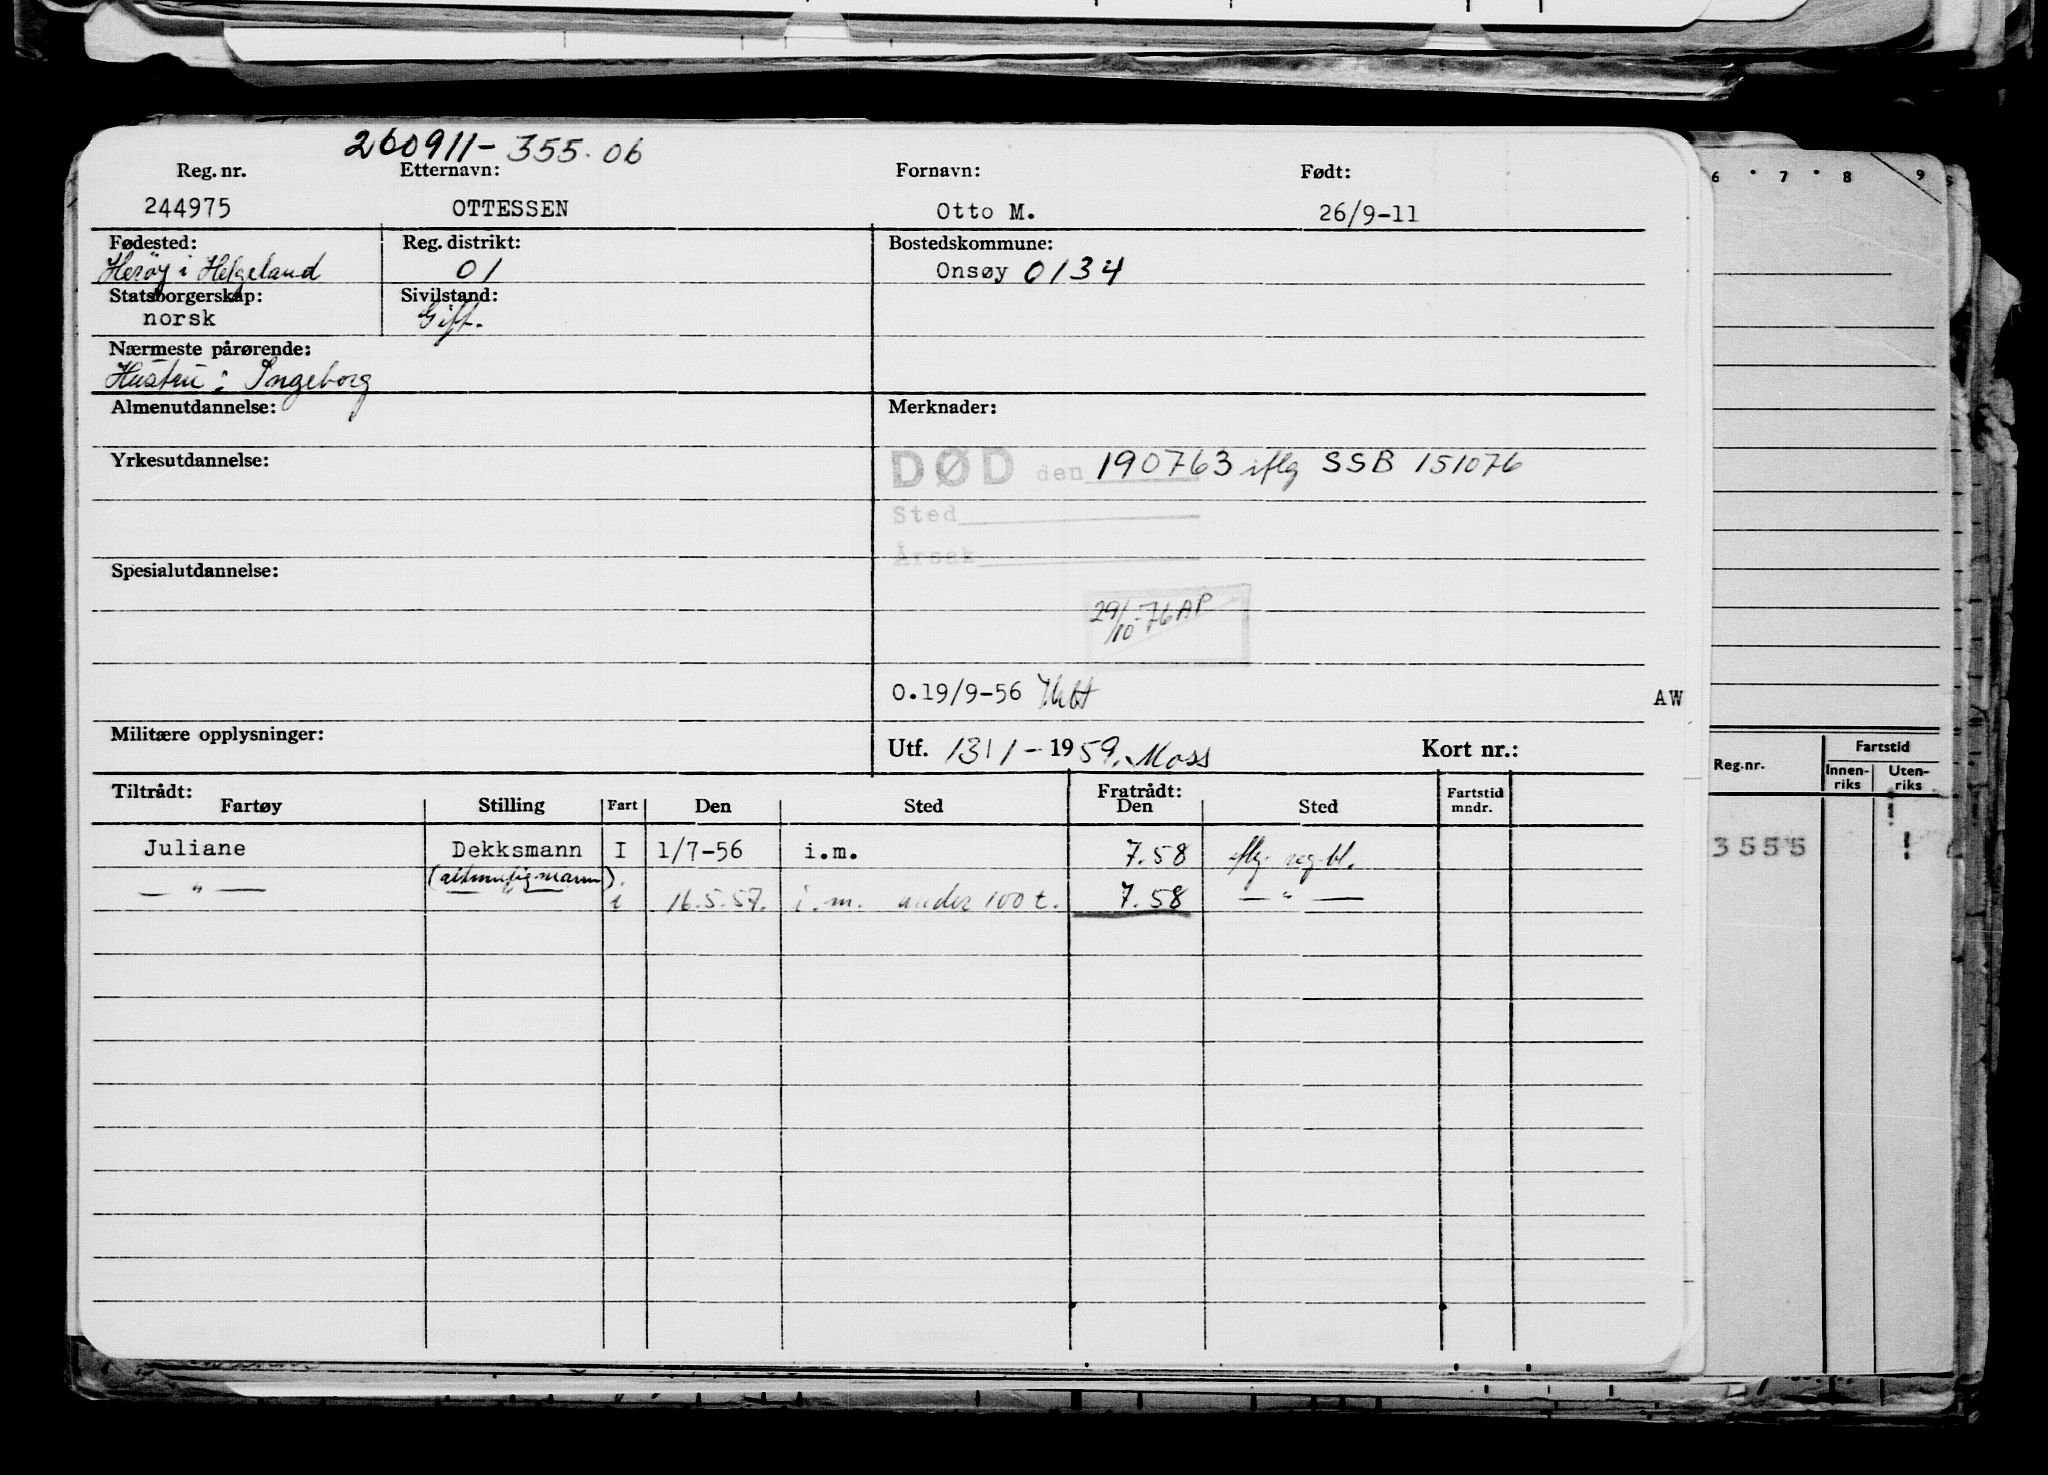 260911-355.06
Reg. nr. Etternavn: Fornavn: Født:
244975 OTTESSEN Otto M. 26/9-11
Fødested: Reg. distrikt: Bostedskommune:
Herøy i Helgeland 01 Onsøy 0134
Statsborgerskap: Sivilstand:
norsk Gift.
Nærmeste pårørende:
Hustru: Ingeborg
Almenutdannelse: Merknader:
Yrkesutdannelse: DØD den 190763 iflg SSB 151076
Sted
Årsak
Spesialutdannelse:
29/10-76 AP
O.19/9-56
AW
Militære opplysninger: Utf. 13/1-1959. Moss Kort nr.:
Tiltrådt: Fratrådt: Fartstid
Fartøy Stilling Fart Den Sted Den Sted mndr.
Juliane Dekksmann I 1/7-56 i.m. 7.58 iflg. reg.bl.
(altmuligmann)
— " — " i 16.5.57. i.m. under 100 t. 7.58 — " —
6 7 8 9
Reg.nr. Fartstid
Innen-riks Uten-riks
3555